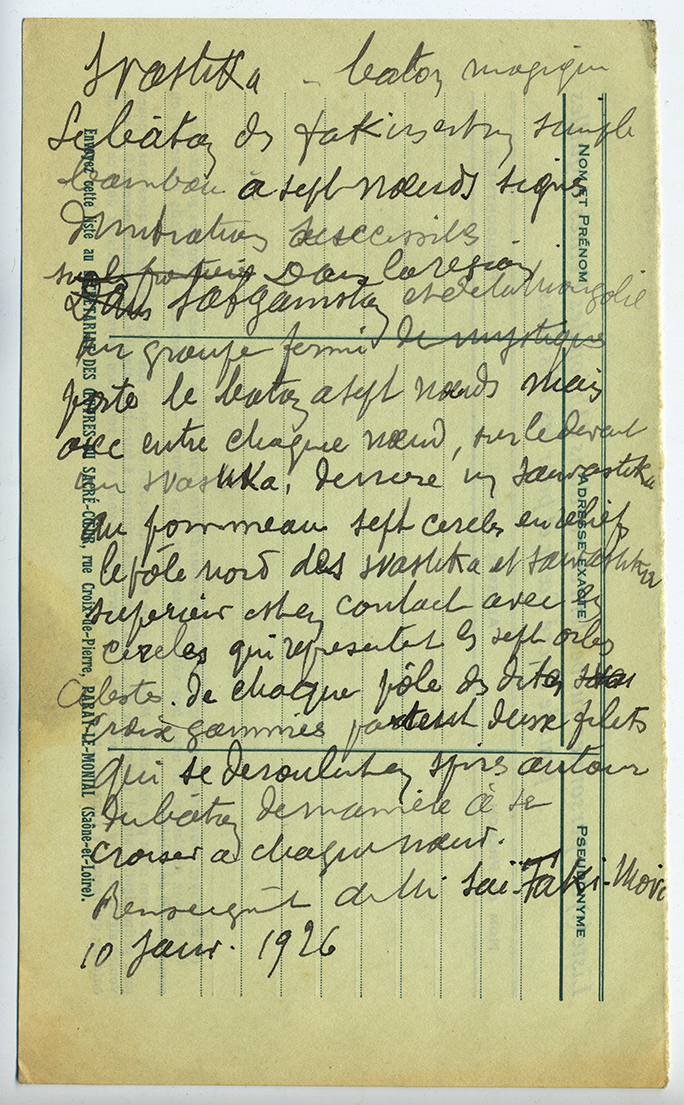 Svastika – baton magique
Le bâton des fakirs est un simple
bambou à sept nœuds signes
d'initiations successives
sur les Dans la région
Dans et de la Mongolie
un groupe fermé de mystiques
porte le baton a sept nœuds mais
avec entre chaque nœud, sur le devant
un svastika, derriere un sauvastika
au pommeau sept cercles en relief
le pôle nord des svastika et sauvastika
superieur est en contact avec
cercles qui representent les sept orbes
celestes. De chaque pôle des dites
croix gammées partent deux filets
qui se deroulent en spires autour
du bâton de maniere à se
croiser a chaque nœud.
Renseignt de Mr Saï-Taki-Movi
10 Janv. 1926
NOM ET PRÉNOM
ADRESSE EXACTE
PSEUDONYME
Envoyez cette liste au SECRÉTARIAT DES ŒUVRES DU SACRÉ-CŒUR, rue Croix-de-Pierre, PARAY-LE-MONIAL (Saône-et-Loire).